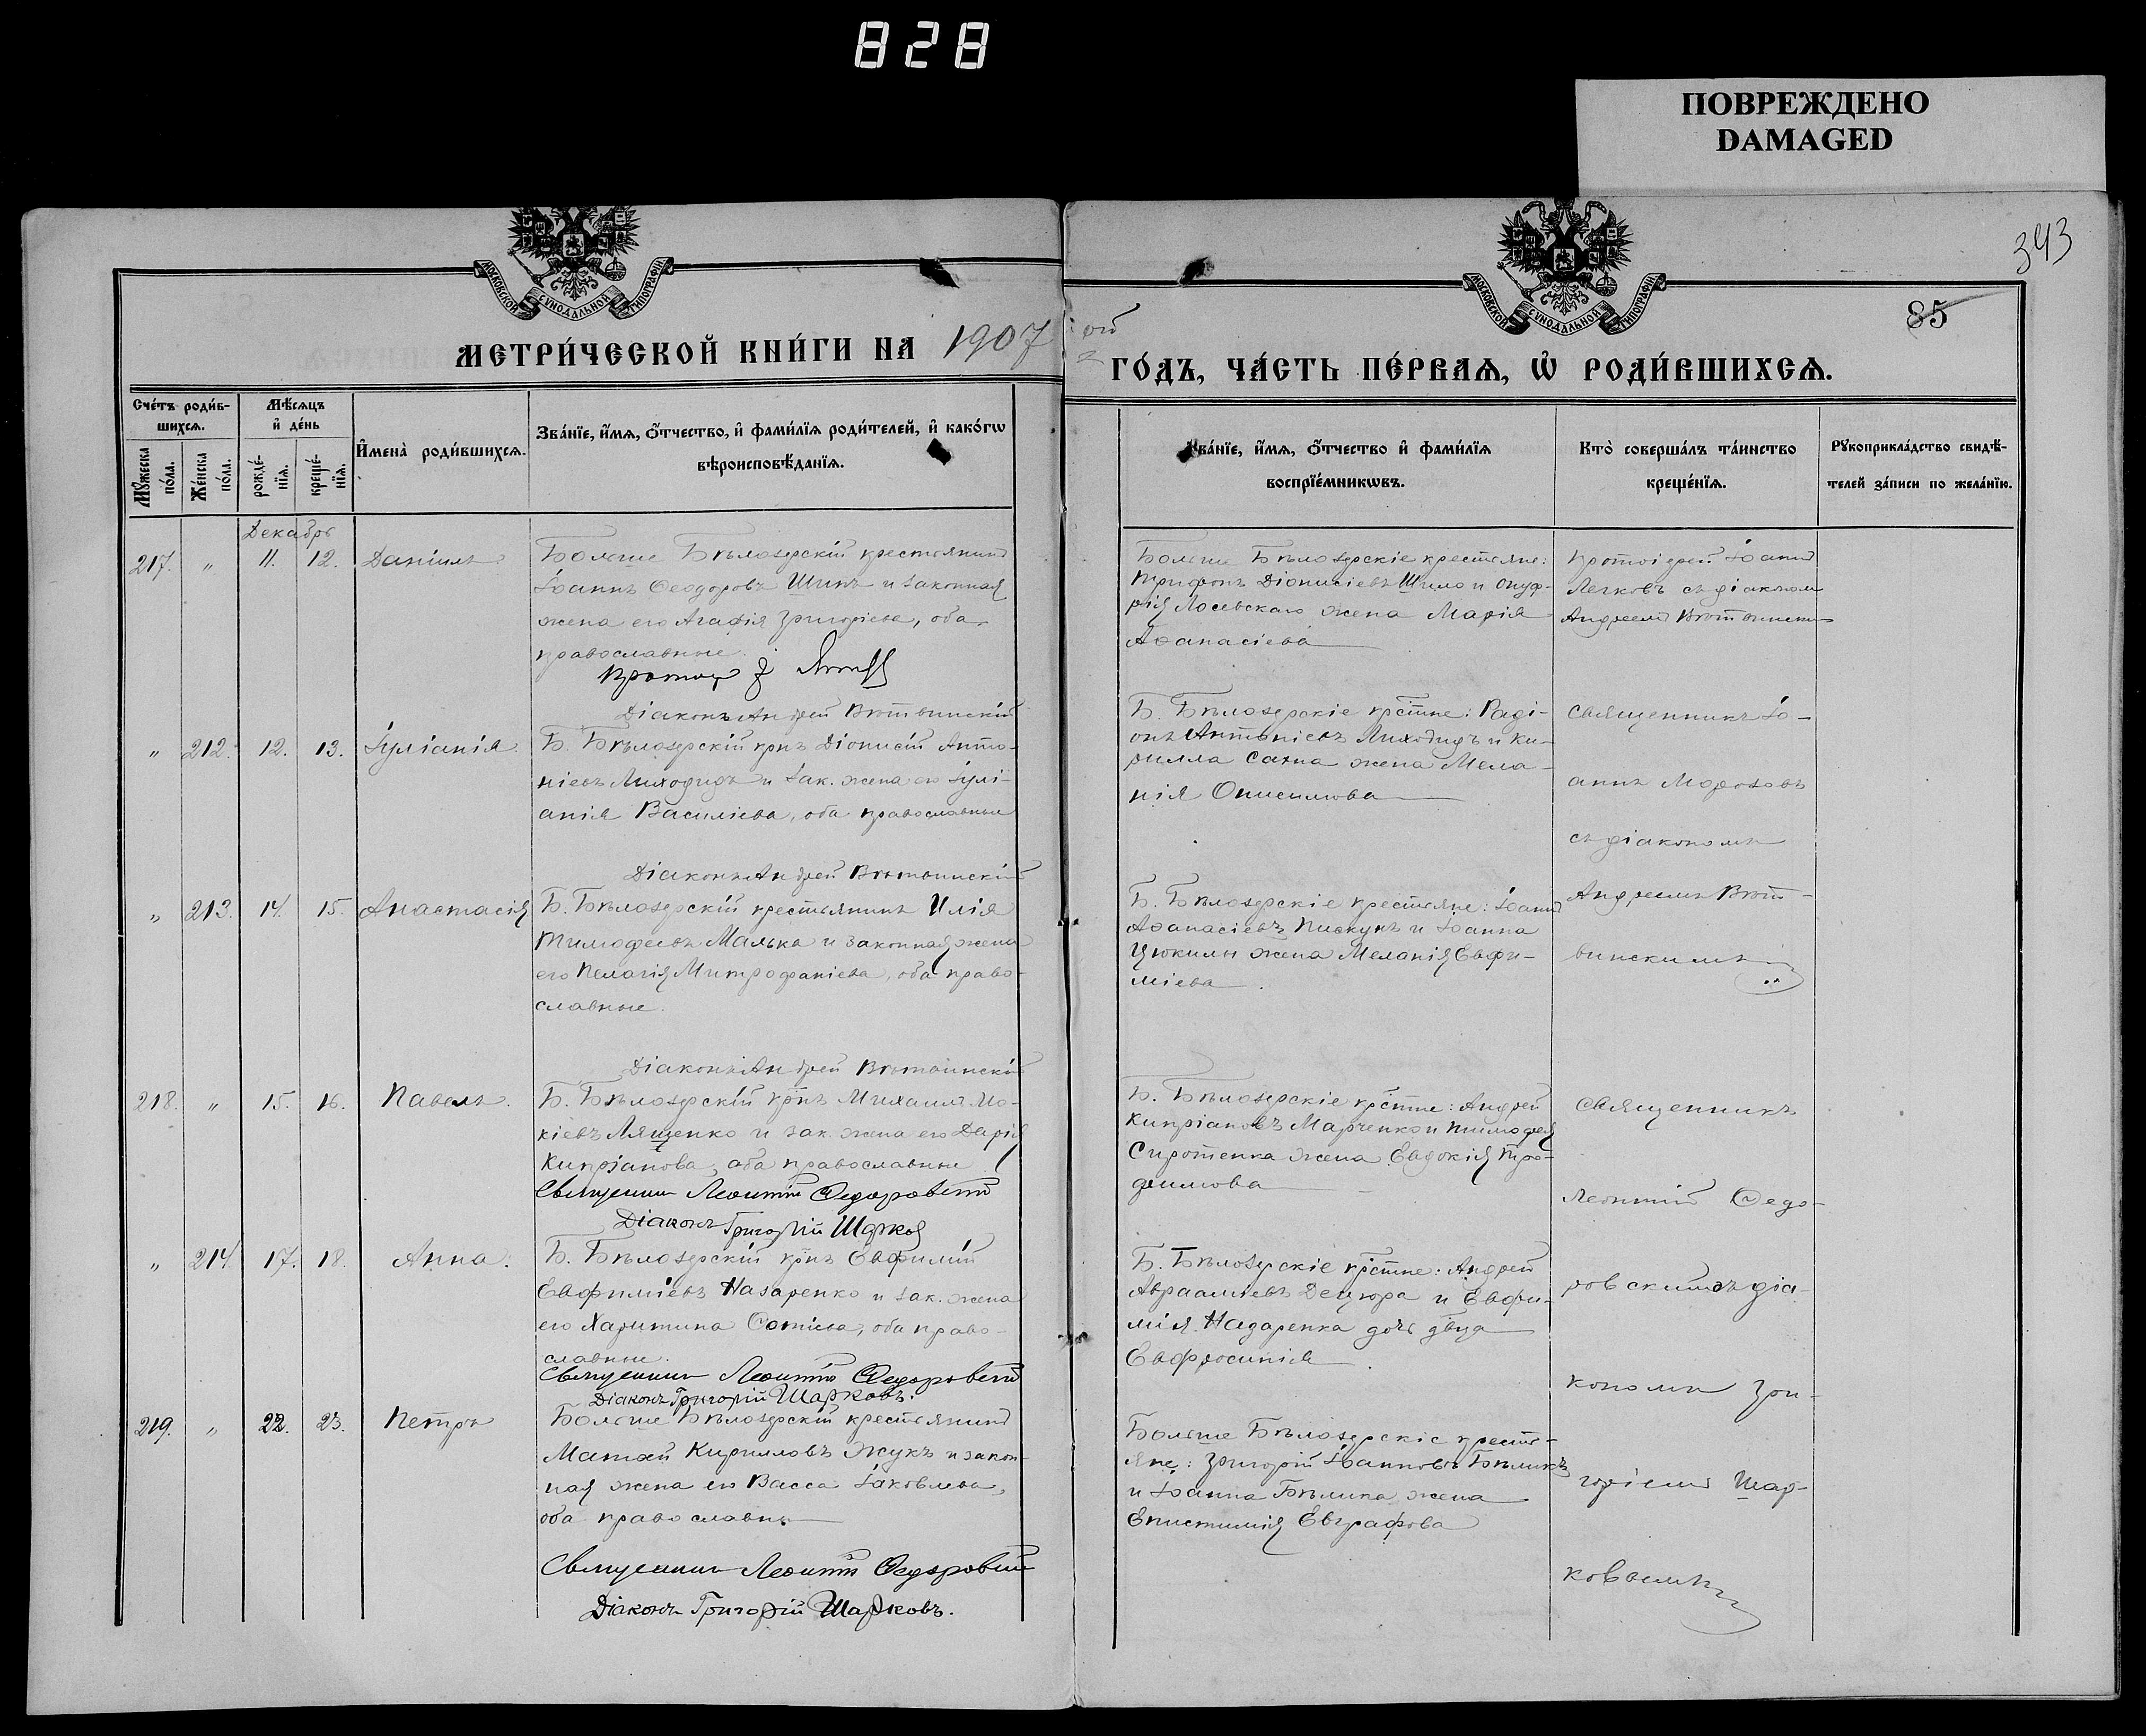 828
ПОВРЕЖДЕНО
DAMAGED
343
85
МОСКОВСКОЙ СѴНОДАЛЬНОЙ ТИПОГРАФІИ
МОСКОВСКОЙ СѴНОДАЛЬНОЙ ТИПОГРАФІИ
МЕТРИ́ЧЕСКОЙ КНИ́ГИ НА 1907 ой
ГО́ДЪ, ЧА́СТЬ ПЕ́РВАѦ, Ѽ РОДИ́ВШИХСѦ.
Сче́тъ роди́в-
шихсѧ.
Мꙋ́жеска по́ла.
Же́нска по́ла.
Мѣ́сѧцъ
и҆ де́нь
рожде́-
нїѧ.
креще́-
нїѧ.
И҆мена̀ роди́вшихсѧ.
Зва́нїе, и҆́мѧ, ѻ҆́тчество, и҆ фами́лїѧ роди́телей, и҆ како́гѡ
вѣроисповѣ́данїѧ.
Зва́нїе, и҆́мѧ, ѻ҆́тчество и҆ фами́лїѧ
воспрїе́мникѡвъ.
Кто̀ соверша́лъ та́инство
креще́нїѧ.
Рꙋкоприкла́дство свидѣ́-
телей за́писи по жела́нїю.
Декабрь
217. „ 11. 12. Даніилъ
Больше Бѣлозерскій крестьянинъ
Іоаннъ Ѳеодоровъ Шинъ и законная
жена его Агафія Григоріева, оба
православные.
Діаконъ Андрей Вютвинскій
Больше Бѣлозерскіе крестьяне:
Трифонъ Діонисіевъ Шило и Онуф-
рія Лосевскаго жена Марія
Аѳанасіева
Протоіерей Іоаннъ
Легковъ съ діакономъ
Андреемъ Вютвинскимъ
„ 212. 12. 13. Іуліанія
Б. Бѣлозерскій крнъ Діонисій Анто-
ніевъ Лиходидъ и зак. жена его Іулі-
анія Василіева, оба православные
Діаконъ Андрей Вютвинскій
Б. Бѣлозерскіе крстне: Раді-
онъ Антоніевъ Лиходидъ и Ки-
рилла Сахна жена Мела-
нія Онисимова
Священникъ Іо-
аннъ Морозовъ
съ діакономъ
Андреемъ Вют-
винскимъ
„ 213. 14. 15. Анастасія
Б. Бѣлозерскій крестьянинъ Илія
Тимофеевъ Малька и законная жена
его Пелагія Митрофаніева, оба право-
славные.
Діаконъ Андрей Вютвинскій
Б. Бѣлозерскіе крестьяне: Іоаннъ
Аѳанасіевъ Пискунъ и Іоанна
Цюкилы жена Меланія Евфи-
міева
218. „ 15. 16. Павелъ.
Б. Бѣлозерскій крнъ Михаилъ Мо-
кіевъ Лященко и зак. жена его Дарія
Кипріанова, оба православные
Священникъ Леонтій Ѳедоровскій
Діаконъ Григорій Шарков
Б. Бѣлозерскіе крстне: Андрей
Кипріановъ Марченко и Тимофея
Сиротенка жена Евдокія Тро-
фимова
Священникъ
Леонтій Ѳедо-
ровскій съ діа-
кономъ Гри-
горіемъ Шар-
ковымъ
„ 214. 17. 18. Анна.
Б. Бѣлозерскій крнъ Евфимій
Евфиміевъ Назаренко и зак. жена
его Харитина Ѳотіева, оба право-
славные.
Священникъ Леонтій Ѳедоровскій
Діаконъ Григорій Шарковъ.
Б. Бѣлозерскіе крстне: Андрей
Аврааміевъ Децюра и Евфи-
мія Назаренка дочь двца
Евфросинія
219. „ 22. 23. Петръ
Больше Бѣлозерскій крестьянинъ
Матѳій Кирилловъ Жукъ и закон-
ная жена его Васса Іаковлева,
оба православны
Священникъ Леонтій Ѳедоровскій
Діаконъ Григорій Шарковъ.
Больше Бѣлозерскіе кресть-
яне: Григорій Іоанновъ Бѣликъ
и Іоанна Бѣлика жена
Епистимія Евграфова